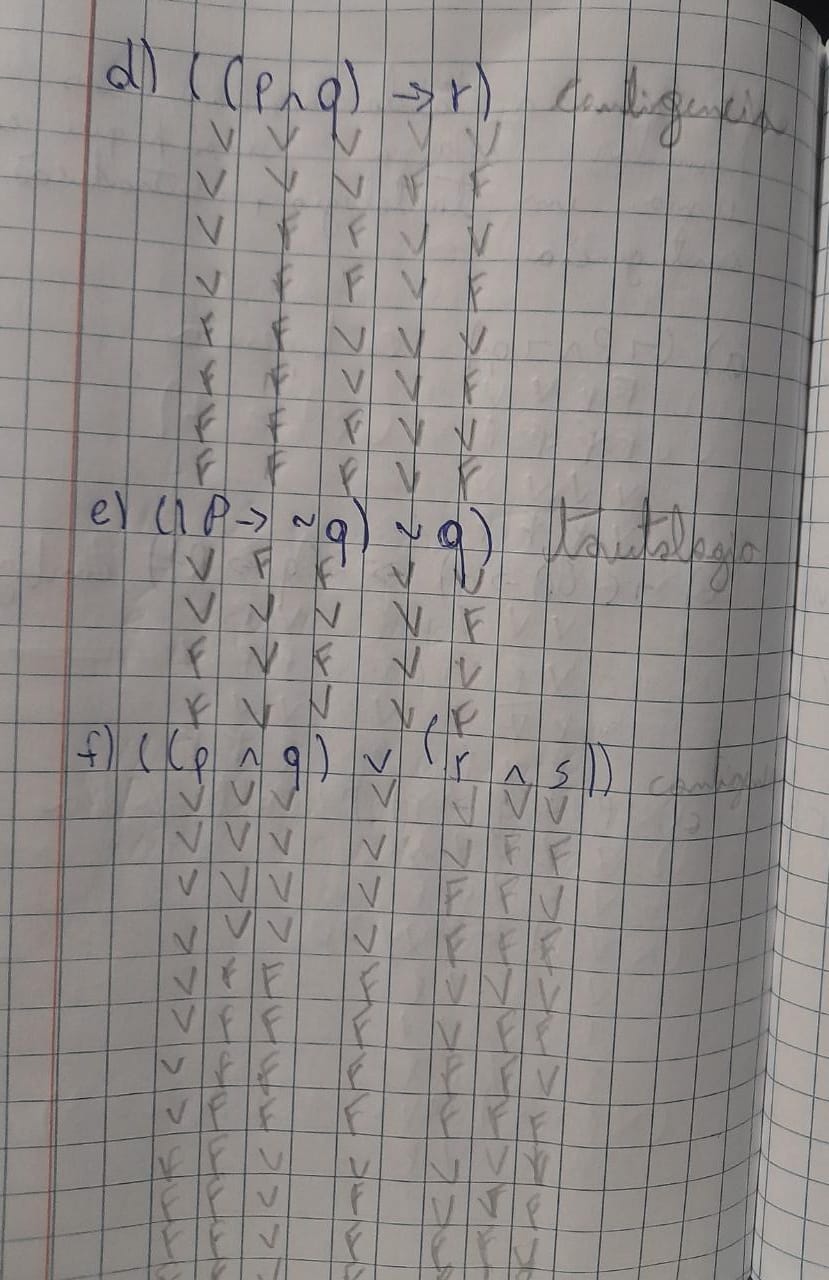 d) ((p ∧ q) → r) Contigencia
V V V V V
V V V F F
V F F V V
V F F V F
F F V V V
F F V V F
F F F V V
F F F V F
e) (( P → ~q) ~ q) tautologia
V F F V V
V V V V F
F V F V V
F V V V F
f) ((p ∧ q) v (r ∧ s))
V V V V V V V
V V V V V F F
V V V V F F V
V V V V F F F
V F F F V V V
V F F F V F F
V F F F F F V
V F F F F F F
F F V V V V V
F F V F V F F
F F V F F F V